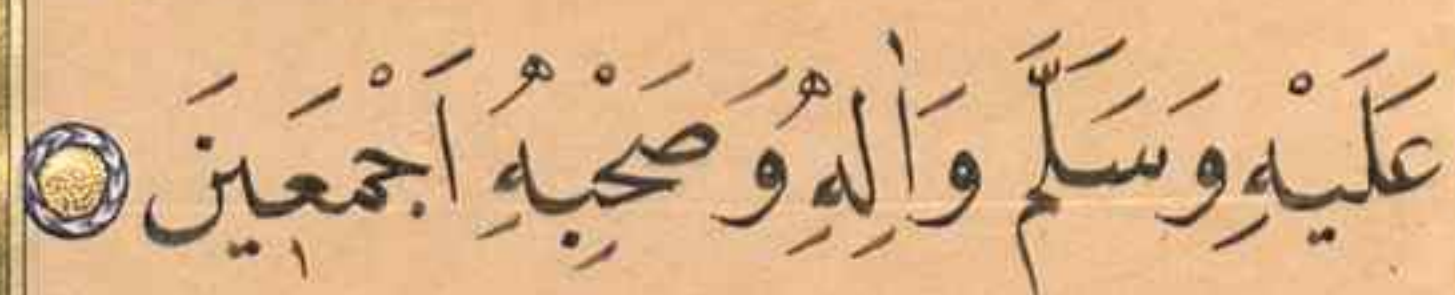 عَلَيْهِ وَسَلَّمَ وَاٰلِهِ وَصَحْبِهِ اَجْمَعِينَ